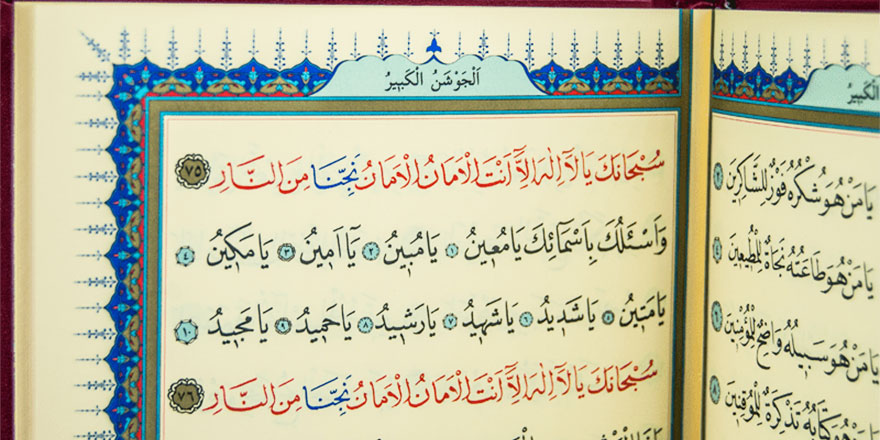 الْكَبِيرُ
يَا مَنْ هُوَ شُكْرُهُ فَوْزٌ لِلشَّاكِرِينَ ٢
يَا مَنْ هُوَ طَاعَتُهُ نَجَاةٌ لِلْمُطِيعِينَ ٤
يَا مَنْ هُوَ سَبِيلُهُ وَاضِحٌ لِلْمُؤْمِنِينَ ٦
يَا مَنْ هُوَ كِتَابُهُ تَذْكِرَةٌ لِلْمُوقِنِينَ ٨
اَلْجَوْشَنُ الْكَبِيرُ
سُبْحَانَكَ يَا لَآ اِلٰهَ اِلَّآ اَنْتَ الْاَمَانُ الْاَمَانُ نَجِّنَا مِنَ النَّارِ ٧٥
وَاَسْئَلُكَ بِاَسْمَآئِكَ يَا مُعِينُ ١ يَا مُبِينُ ٢ يَآ اَمِينُ ٣ يَا مَكِينُ ٤
يَا مَتِينُ ٥ يَا شَدِيدُ ٦ يَا شَهِيدُ ٧ يَا رَشِيدُ ٨ يَا حَمِيدُ ٩ يَا مَجِيدُ ١٠
سُبْحَانَكَ يَا لَآ اِلٰهَ اِلَّآ اَنْتَ الْاَمَانُ الْاَمَانُ نَجِّنَا مِنَ النَّارِ ٧٦